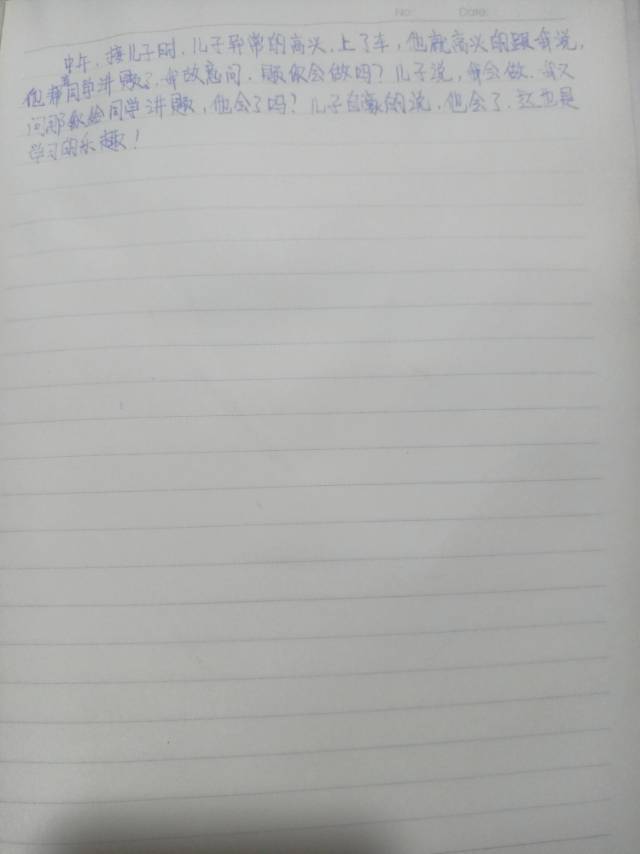 No: Date:
中午,接儿子时,儿子异常的高兴,上了车,他就高兴的跟我说,
他帮着同学讲题了,我故意问,题你会做吗?儿子说,我会做.我又
问那你给同学讲题,他会了吗?儿子自豪的说,他会了.这也是
学习的乐趣!